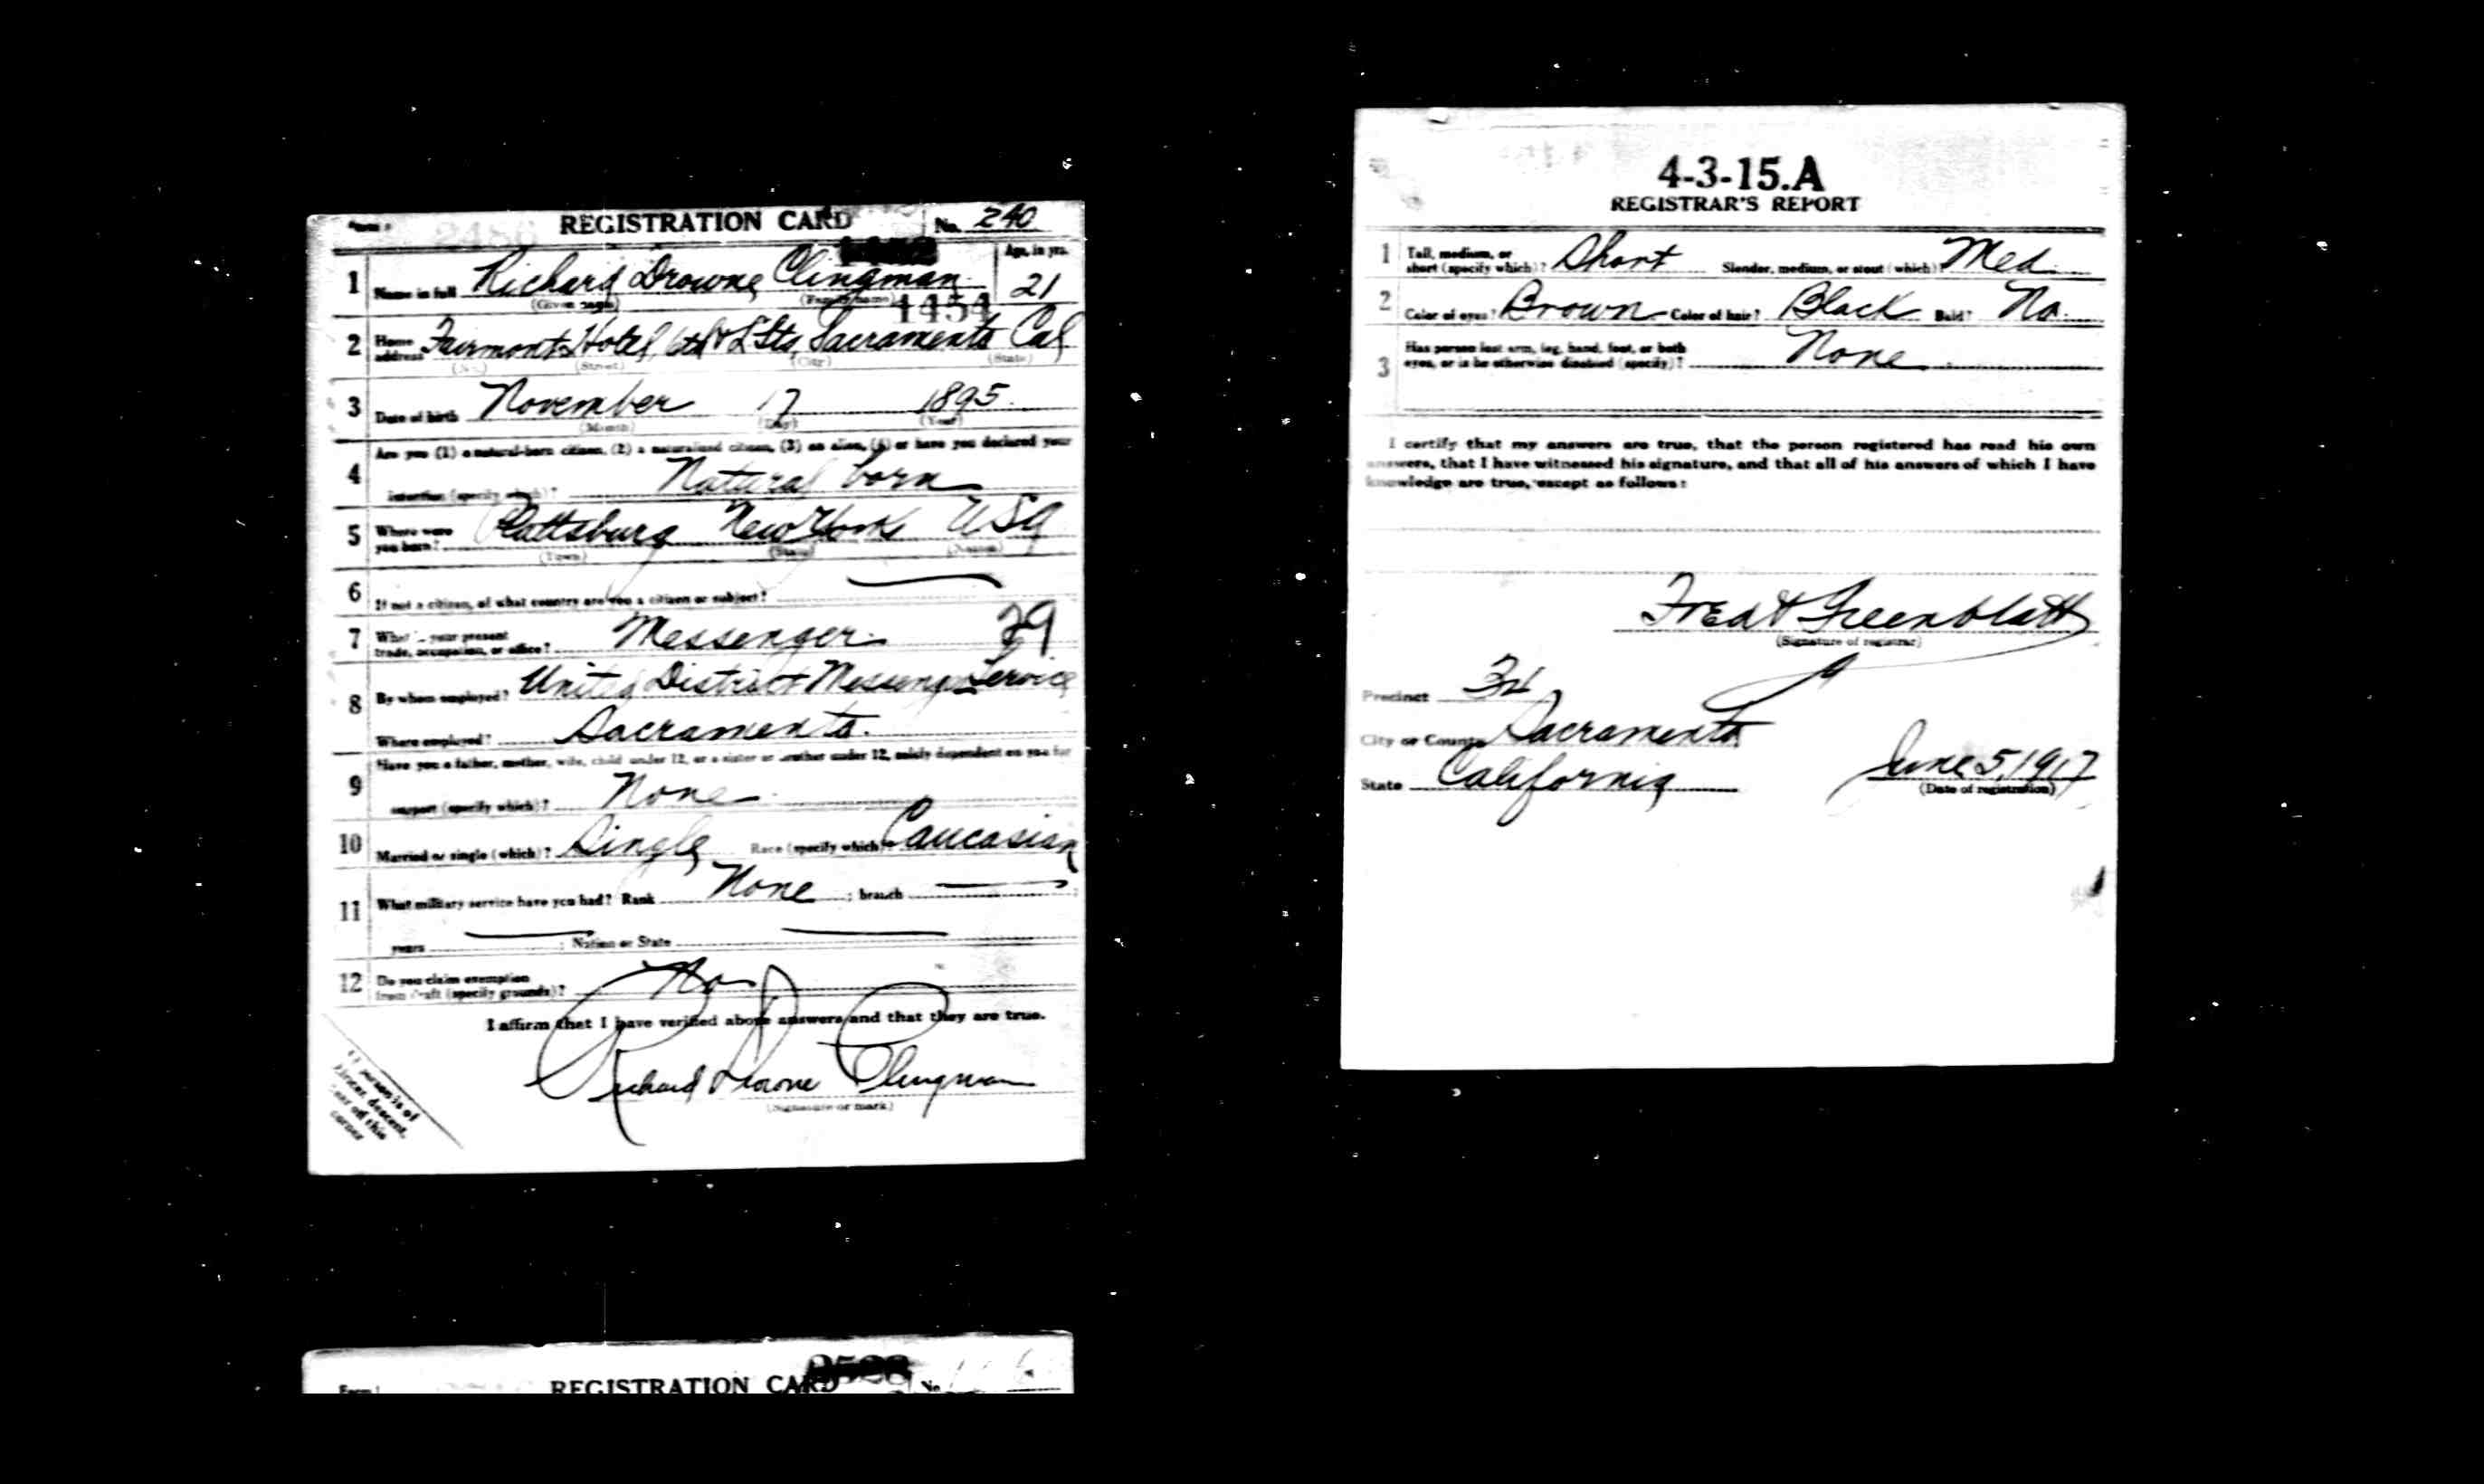 REGISTRATION CARD No. 240
Age, in yrs.
1 Name in full Richard Drowne Clingman 21
(Given name) (Family name) 1454
2 Home address Fairmont Hotel, 6th & L Sts, Sacramento Cal
(No.) (Street) (City) (State)
3 Date of birth November 17 1895
(Month) (Day) (Year)
Are you (1) a natural-born citizen, (2) a naturalized citizen, (3) an alien, (4) or have you declared your
4 intention (specify which)? Natural born
5 Where were you born? Plattsburg New York USA
(Town) (State) (Nation)
6 If not a citizen, of what country are you a citizen or subject?
7 What is your present trade, occupation, or office? Messenger. 29
8 By whom employed? United District Messenger Service
Where employed? Sacramento.
Have you a father, mother, wife, child under 12, or a sister or brother under 12, solely dependent on you for
9 support (specify which)? None
10 Married or single (which)? Single Race (specify which)? Caucasian
11 What military service have you had? Rank None ; branch ;
years ; Nation or State
12 Do you claim exemption from draft (specify grounds)? No
I affirm that I have verified above answers and that they are true.
Richard Drowne Clingman
(Signature or mark)
person is of
African descent,
tear off this
corner
REGISTRATION CARD No.
4-3-15.A
REGISTRAR'S REPORT
1 Tall, medium, or short (specify which)? Short Slender, medium, or stout (which)? Med.
2 Color of eyes? Brown Color of hair? Black Bald? No.
3 Has person lost arm, leg, hand, foot, or both eyes, or is he otherwise disabled (specify)? None
I certify that my answers are true, that the person registered has read his own
answers, that I have witnessed his signature, and that all of his answers of which I have
knowledge are true, except as follows:
Greenblatt
(Signature of registrar)
Precinct 3rd
City or County Sacramento
State California June 5, 1917
(Date of registration)